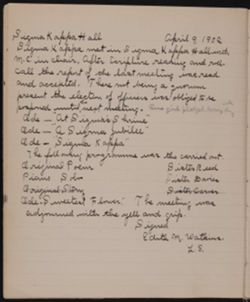 Sigma Kappa Hall April 9, 1902
Sigma Kappa met in Sigma Kappa Hall with
M.C. in chair. After scripture reading and roll
call the report of the last meeting was read
and accepted. There not being a quorum
present the election of officers was obliged to be
postponed until next meeting.
Ode - At Sigma's Shrine
Ode - A Sigma Jubilee
Ode - Sigma Kappa
The following programme was then carried out.
Original Poem Sister Reed
Piano Solo Sister Davies
Original Story Sister Carver
Ode - Sweetest Flower. The meeting was
adjourned with the yell and grip.
Signed
Edith M. Watkins.